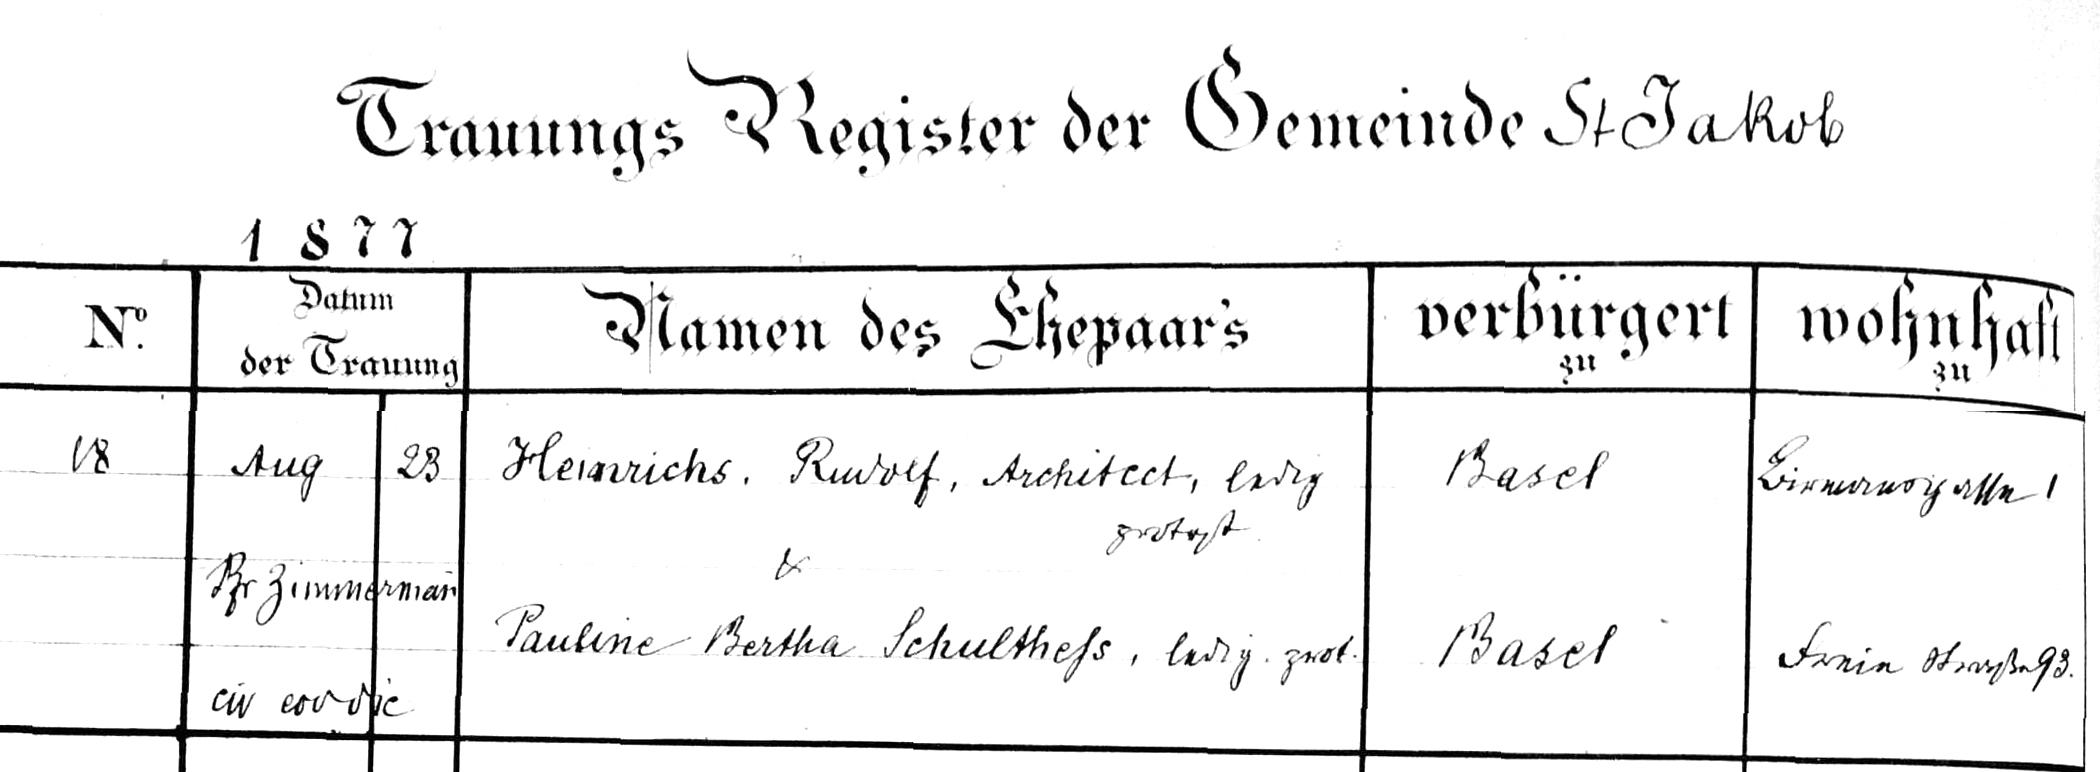 Trauungs Register der Gemeinde St Jakob
1877
No. Datum der Trauung Namen des Ehepaar's verbürgert zu wohnhaft zu
18 Aug 23 Heinrichs. Rudolf, Architect, ledig Basel Birmansgasse 1
protest
&
Pfr Zimmerman̄
Pauline Bertha Schultheſs, ledig. prot. Basel Freie Straße 93.
civ eod die